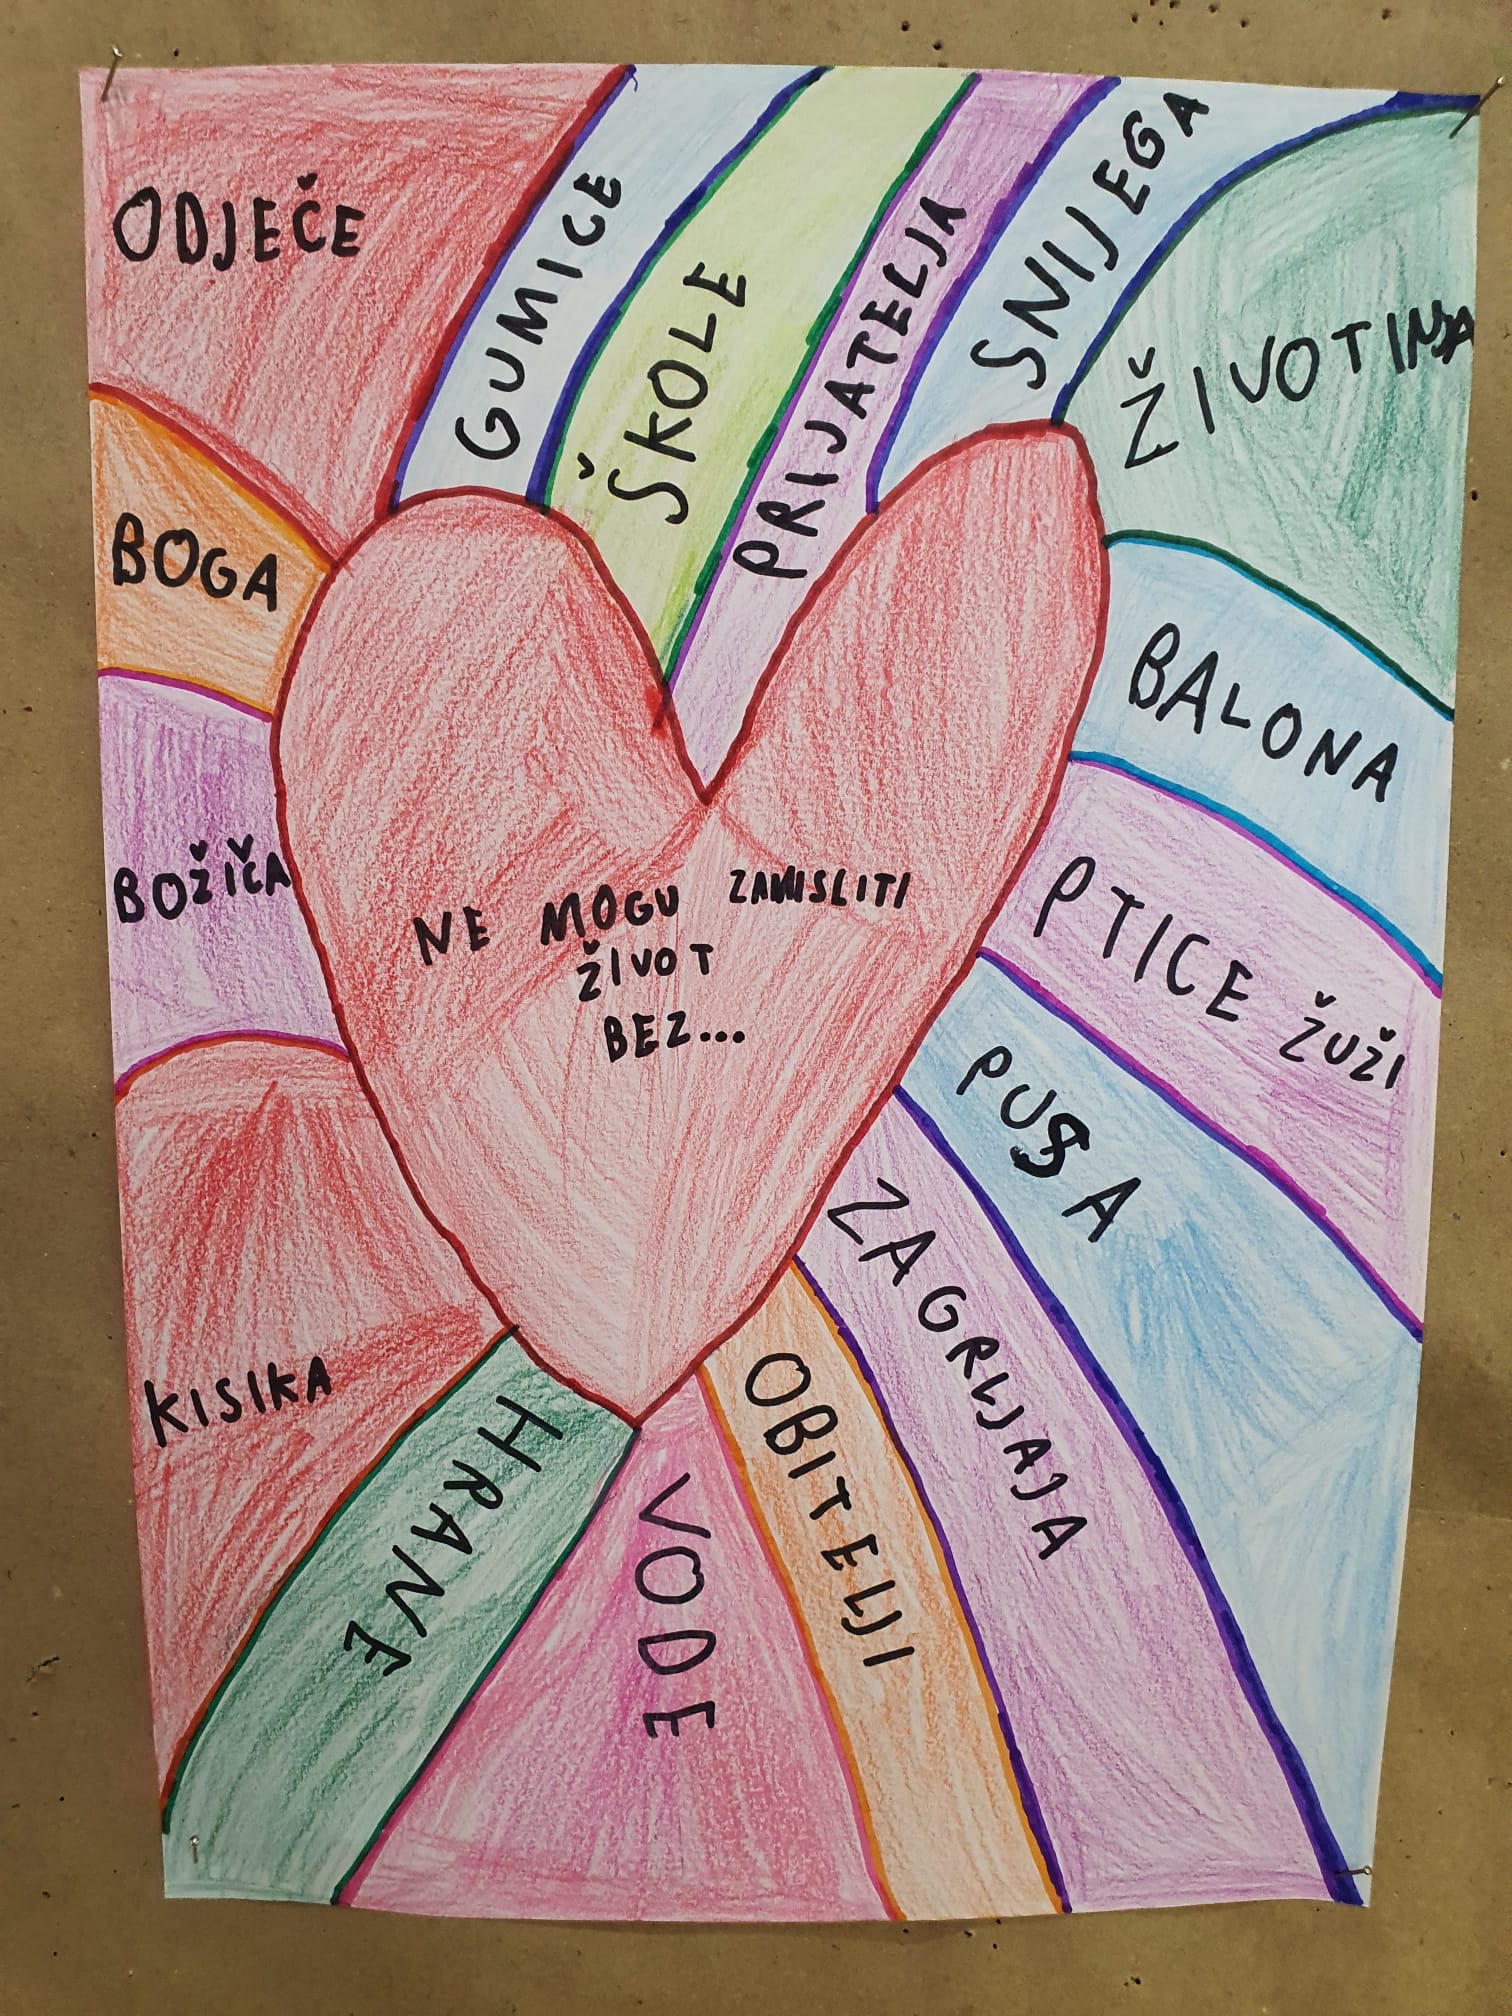 NE MOGU ZAMISLITI
ŽIVOT
BEZ...
ODJEČE
GUMICE
ŠKOLE
PRIJATELJA
SNIJEGA
ŽIVOTINJA
BALONA
PTICE ŽUŽI
PUSA
ZAGRLJAJA
OBITELJI
VODE
HRANE
KISIKA
BOŽIČA
BOGA